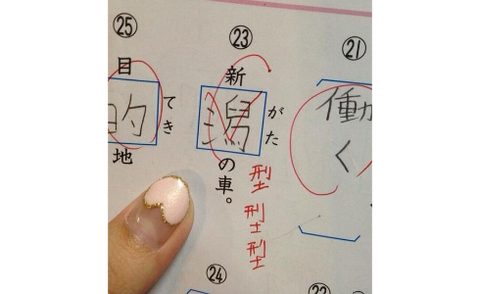 ㉑
働
く
㉓
新
潟
がた
の車。
型
型
型
㉕
目
的
てき
地
㉔